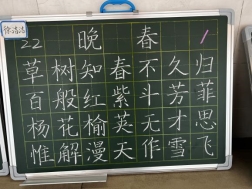 徐洁洁
22 晚春 1
草树知春不久归
百般红紫斗芳菲
杨花榆荚无才思
惟解漫天作雪飞